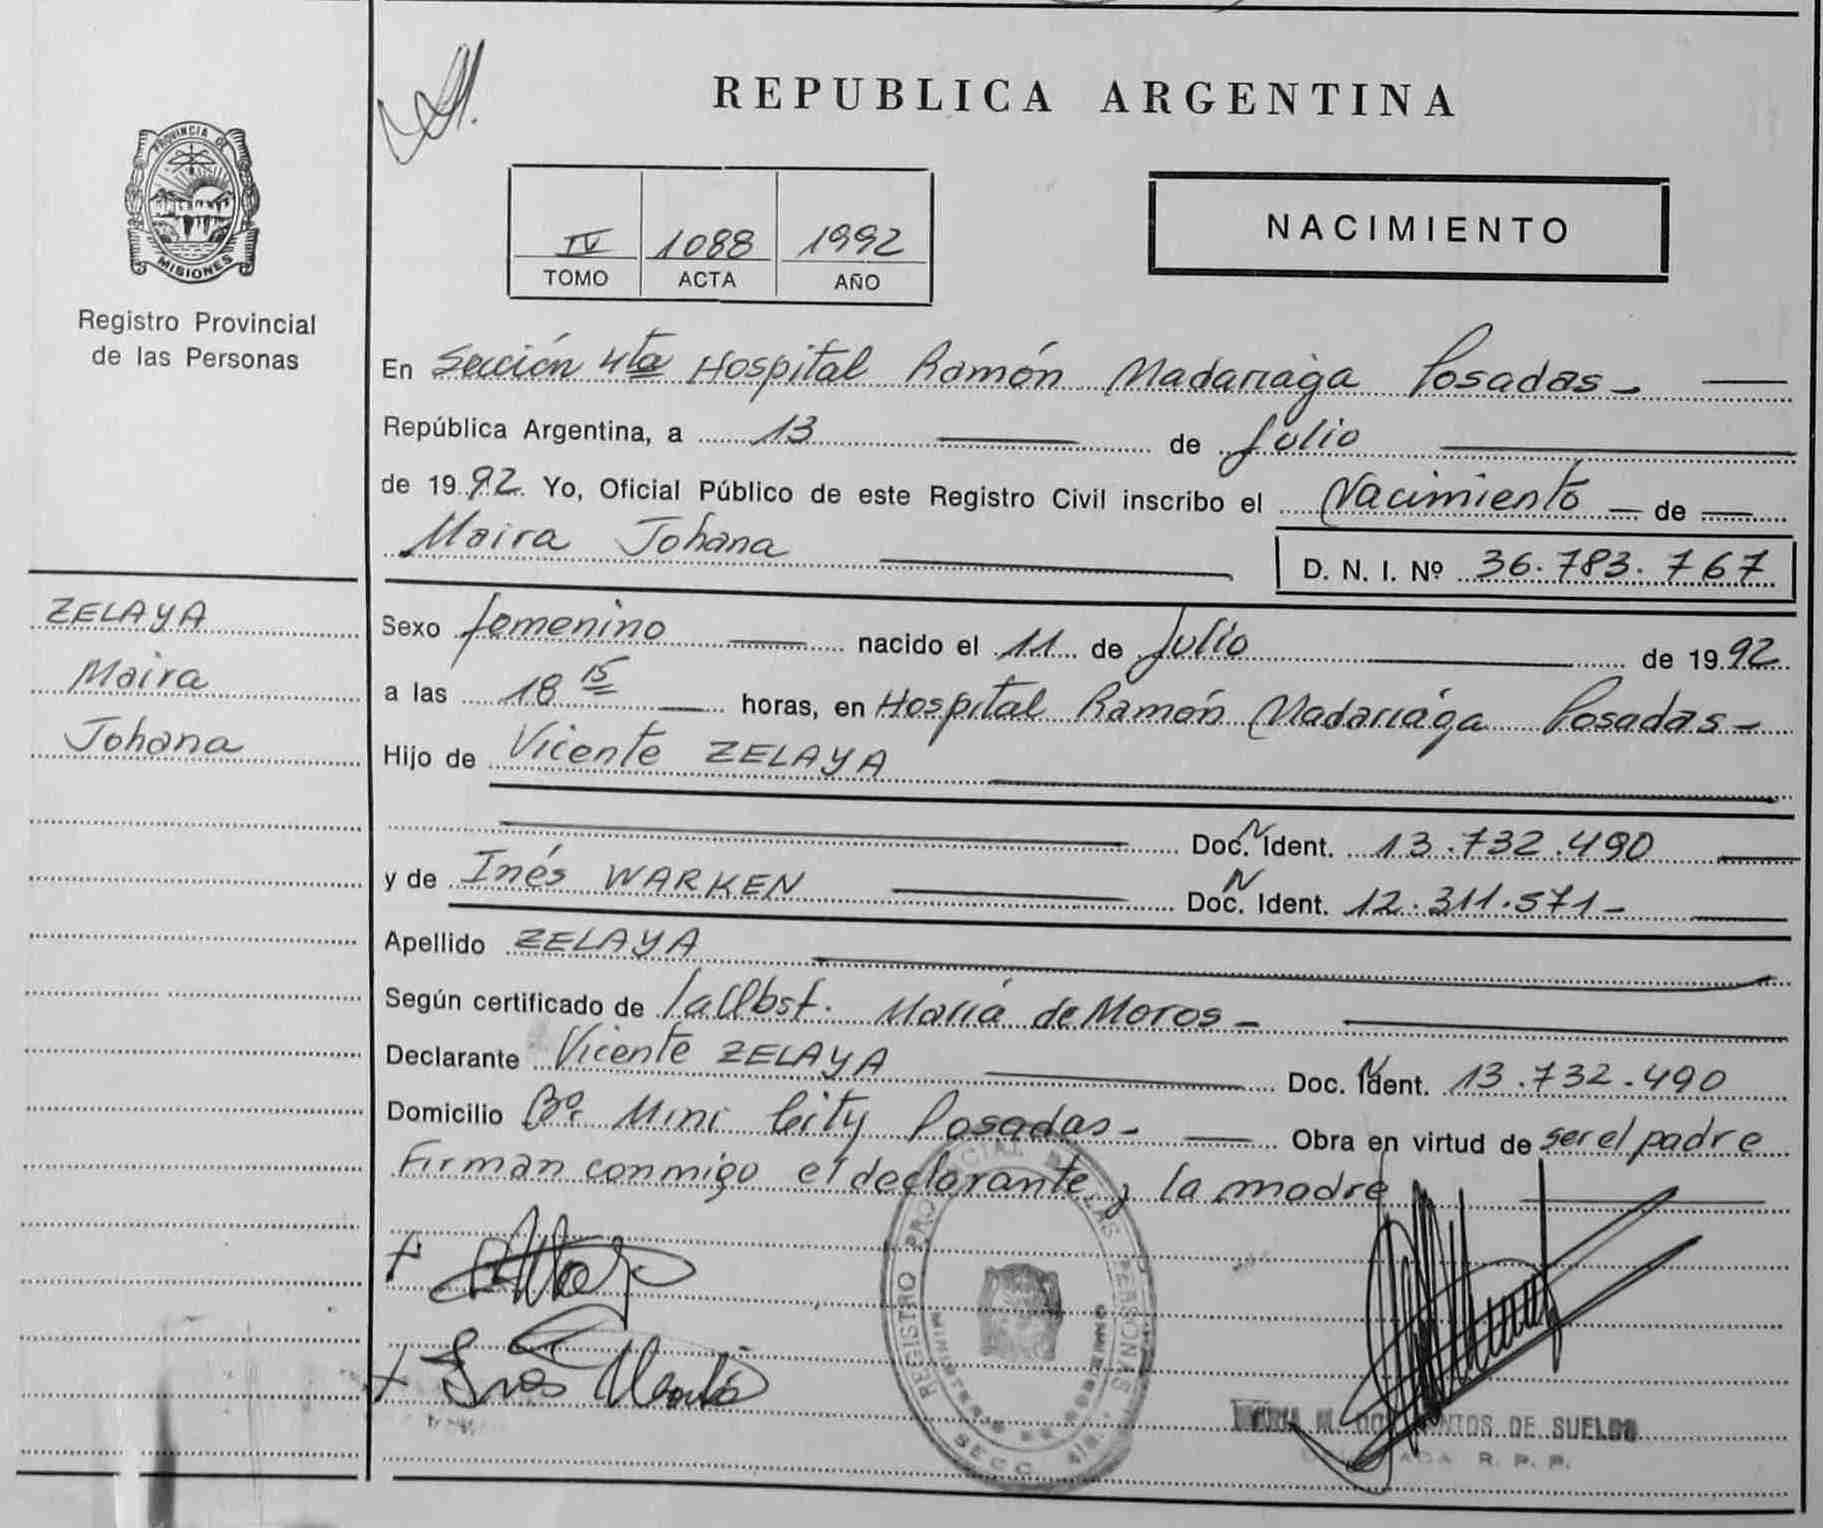 REPUBLICA ARGENTINA
PROVINCIA DE
MISIONES
Registro Provincial
de las Personas
IV 1088 1992
TOMO ACTA AÑO
NACIMIENTO
En Sección 4ta Hospital Ramón Madariaga Posadas-
República Argentina, a 13 de Julio
de 1992. Yo, Oficial Público de este Registro Civil inscribo el Nacimiento de
Maira Johana
D. N. I. Nº 36.783.767
ZELAYA
Maira
Johana
Sexo femenino nacido el 11 de Julio de 1992
a las 18 15 horas, en Hospital Ramón Madariaga Posadas-
Hijo de Vicente ZELAYA
Doc. N Ident. 13.732.490
y de Inés WARKEN Doc. N Ident. 12.311.571-
Apellido ZELAYA
Según certificado de la Obst. María de Moros-
Declarante Vicente ZELAYA Doc. N Ident. 13.732.490
Domicilio Bº Mini City Posadas- Obra en virtud de ser el padre
Firman conmigo el declarante y la madre
REGISTRO PROVINCIAL DE LAS PERSONAS
MINISTERIO DE GOBIERNO
SECC.
Inés
DE SUELDO
R. P. P.